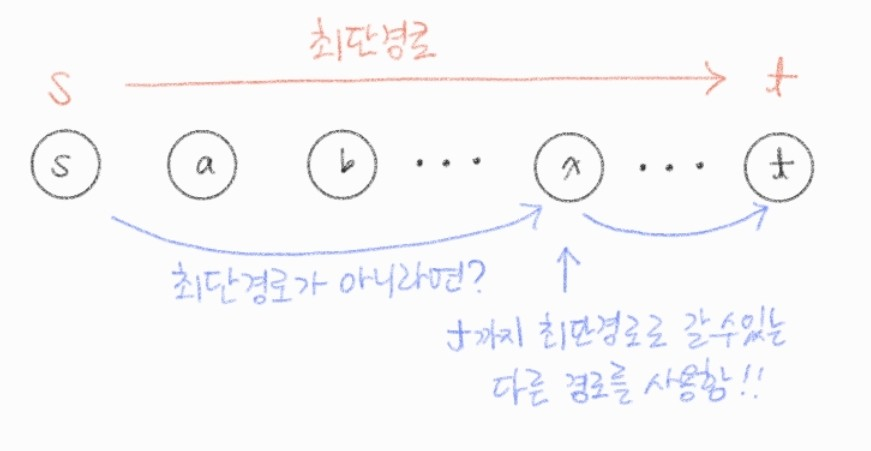 최단경로
s t
s a b ... x ... t
최단경로가 아니라면?
t까지 최단경로로 갈수있는
다른 경로를 사용함!!